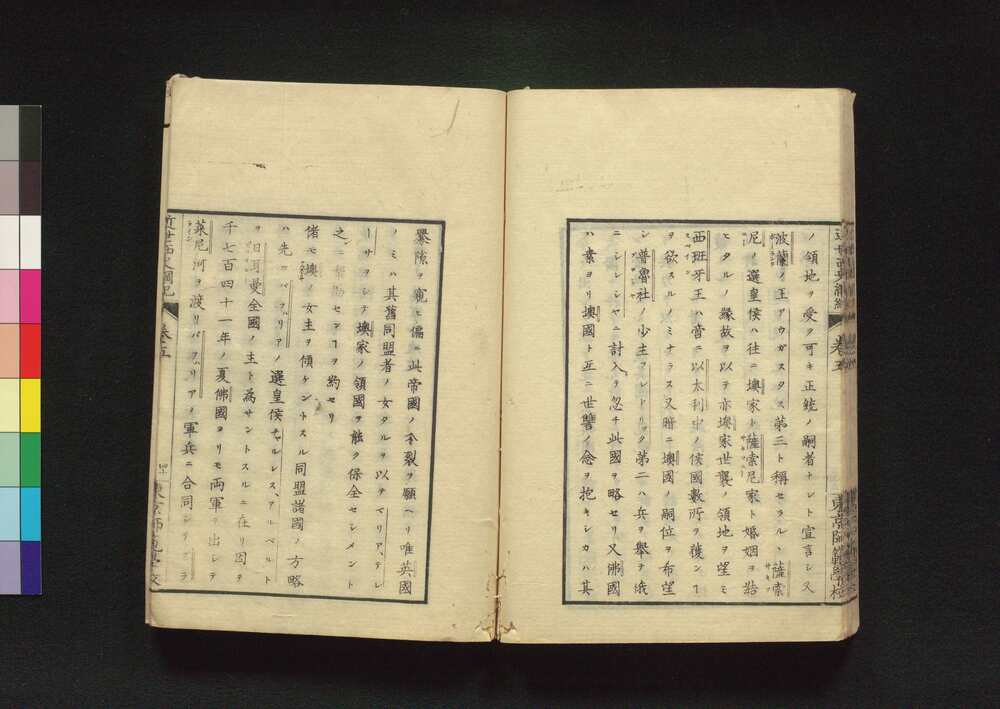 ノ領地ヲ受ク可キ正統ノ嗣者ナシト宣言シ又
波蘭ノ王アウガスタス第三ト稱セラル、薩索
尼ノ選皇侯ハ往ニ墺家ト薩索尼家ト婚姻ヲ結
ヒタルノ縁故ヲ以テ亦墺家世襲ノ領地ヲ望ミ
西班牙王ハ啻ニ以太利中ノ侯國數所ヲ獲ンヿ
ヲ欲スルノミナラス又暗ニ墺國ノ嗣位ヲ希望
シ普魯社ノ少主フレドリック第二ハ兵ヲ擧テ俄
ニシレシヤニ討入ヲ忽チ此國ヲ略セリ又佛國
ハ素ヨリ墺國ト互ニ世讐ノ念ヲ抱キシカハ其
釁隙ヲ窺ヒ偏ニ此帝國ノ分裂ヲ願ヘリ唯英國
ノミハ其舊同盟者ノ女タルヲ以テマリア、テレ
ーサヲシテ墺家ノ領國ヲ能ク保全セシメント
之ニ センヿヲ約セリ
偖モ墺ノ女主ヲ傾ケントスル同盟諸國ノ方略
ハ先ツバヴリアノ選皇侯チャルレス、アルベルト
ヲ日耳曼全國ノ主ト為サントスルニ在リ因テ
千七百四十一年ノ夏佛國ヨリモ両軍ヲ出シテ
萊尼河ヲ渡リバヴリアノ軍兵ニ合同シリンラ
近世西史綱紀 卷五